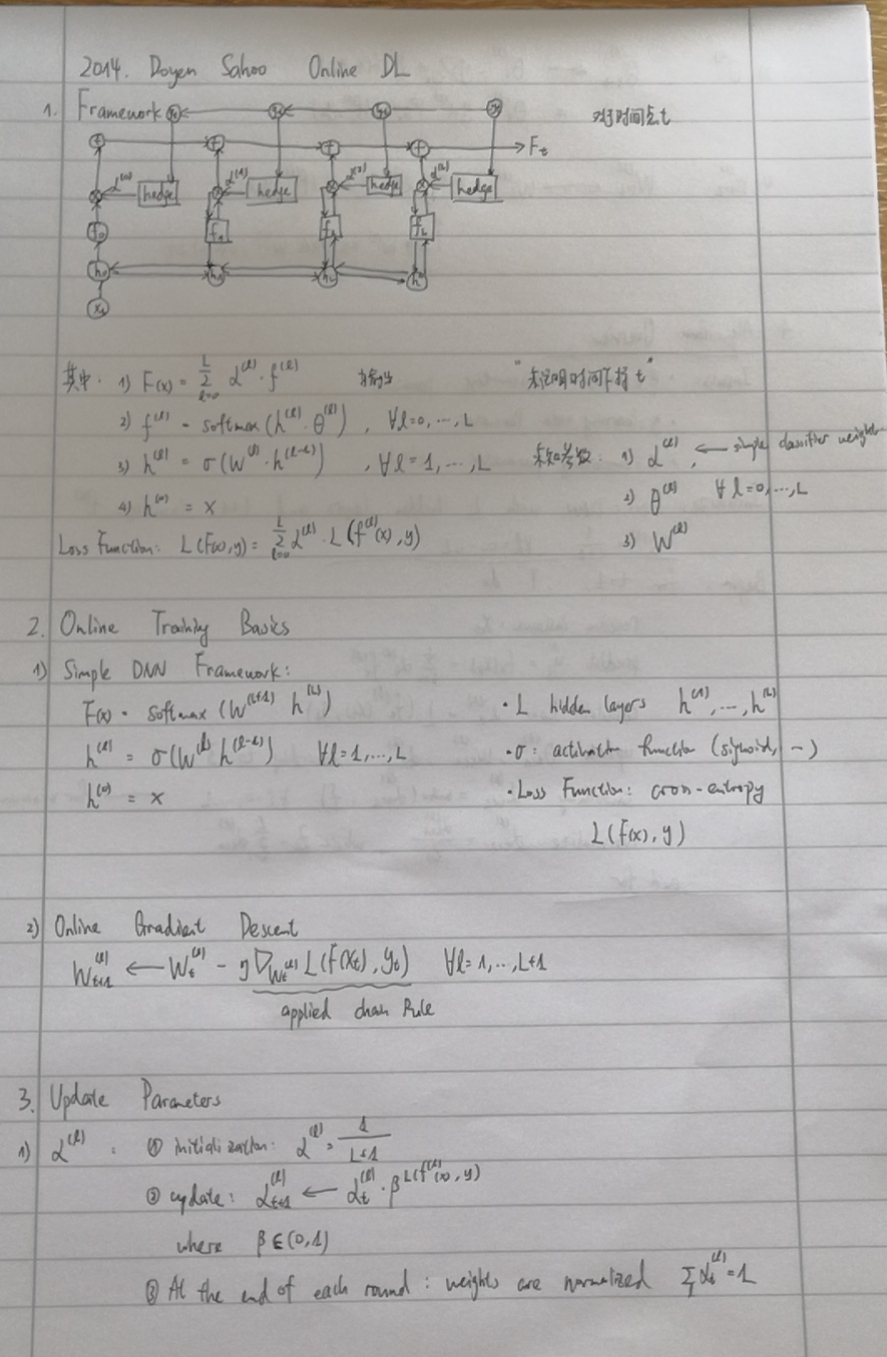 2014. Doyen Sahoo Online DL
1. Framework
对于时间点t
F_t
α^(0) hedge α^(1) hedge α^(2) hedge α^(L) hedge
f_0 f_1 f_2 f_L
h_0
x_t
其中: 1) F(x) = Σ_{l=0}^{L} α^(l) · f^(l)
"未说明时间下指 t"
2) f^(l) = softmax (h^(l) · θ^(l)), ∀l=0, ..., L
3) h^(l) = σ(W^(l) · h^(l-1)), ∀l = 1, ..., L
未知参数: 1) α^(l), ← simple classifier weight
4) h^(0) = x
2) θ^(l) ∀ l=0, ..., L
Loss Function: L(F(x), y) = Σ_{l=0}^{L} α^(l) · L(f^(l)(x), y)
3) W^(l)
2. Online Training Basics
1) Simple DNN Framework:
F(x) = softmax (W^(L+1) h^(L))
· L hidden layers h^(1), ..., h^(L)
h^(l) = σ(W^(l) h^(l-1)) ∀l=1, ..., L
· σ: activation function (sigmoid, ...)
h^(0) = x
· Loss Function: cross-entropy
L(F(x), y)
2) Online Gradient Descent
W_{t+1}^(l) ← W_t^(l) - η ∇_{W_t^(l)} L(F(x_t), y_t) ∀l= 1, ..., L+1
applied chain Rule
3. Update Parameters
1) α^(l) : ① initialization: α^(l) = 1/(L+1)
② update: α_{t+1}^(l) ← α_t^(l) · β^{L(f^(l)(x), y)}
where β ∈ (0, 1)
③ At the end of each round: weights are normalized Σ_l α_t^(l) = 1